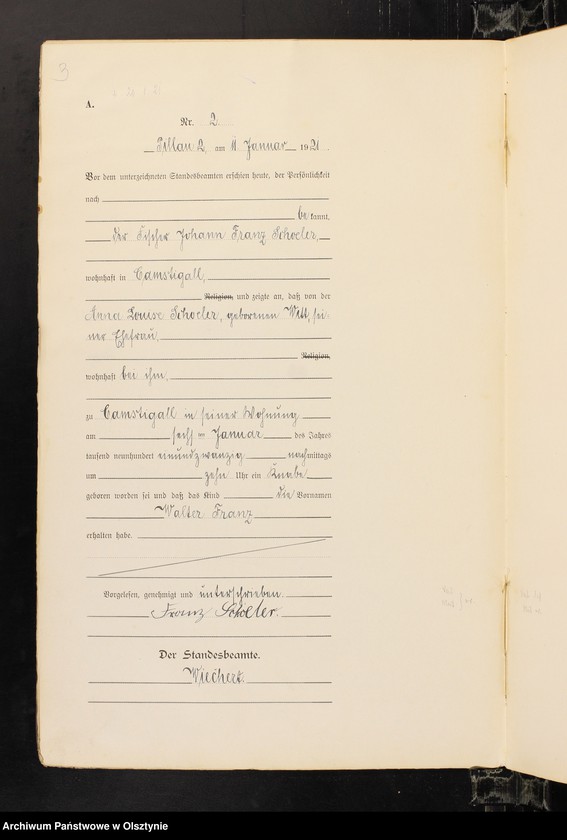 3
A.
Nr. 2.
Pillau 2, am 11. Januar 1921.
Vor dem unterzeichneten Standesbeamten erschien heute, der Persönlichkeit
nach
be kannt,
der Fischer Johann Franz Schoeler,
wohnhaft in Camstigall,
Religion, und zeigte an, daß von der
Anna Louise Schoeler, geborenen Witt, sei-
ner Ehefrau,
Religion,
wohnhaft bei ihm,
zu Camstigall in seiner Wohnung
am sechsten Januar des Jahres
tausend neunhundert einundzwanzig nachmittags
um zehn Uhr ein Knabe
geboren worden sei und daß das Kind die Vornamen
Walter Franz
erhalten habe.
Vorgelesen, genehmigt und unterschrieben.
Franz Schoeler.
Der Standesbeamte.
Wiechert.
Archiwum Państwowe w Olsztynie